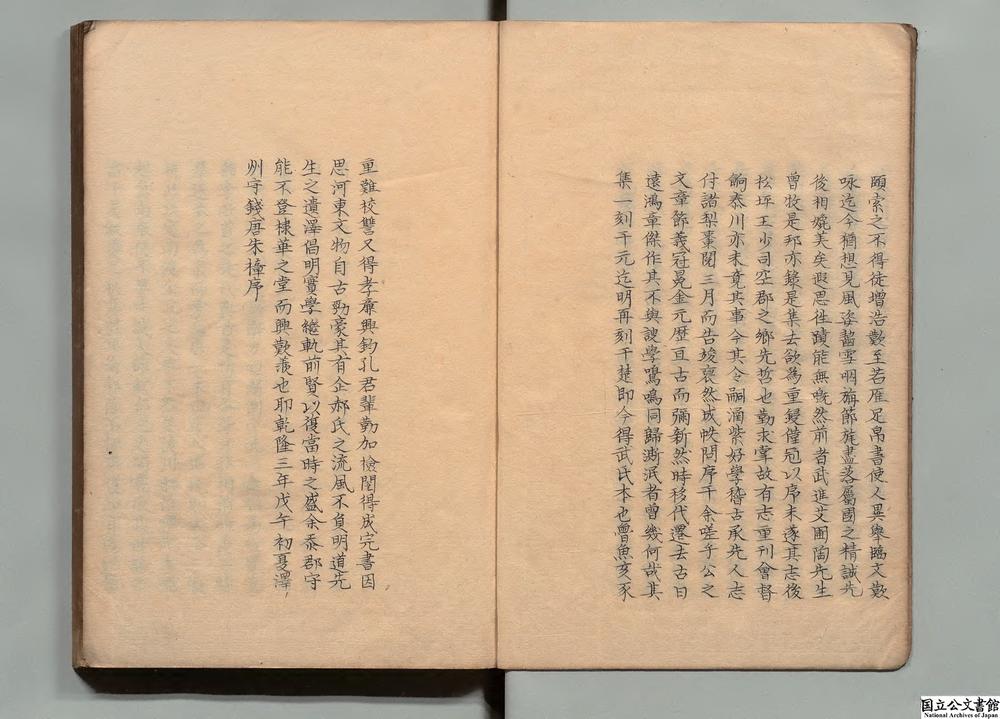 頤索之不得徒增浩歎至若雁足帛書使人異舉臨文歎
咏迄今猶想見風姿齧雪咽旃節旄盡落屬國之精誠先
後相婉美矣遐思往蹟能無嘅然前者武進艾圃陶先生
曾牧是邦亦錄是集去欲為重鋟僅冠以序未遂其志後
松坪王少司空郡之鄉先哲也勤求掌故有志重刊會督
餉泰川亦未竟其事今其令嗣涵紫好學稽古承先人志
付諸梨棗閱三月而告竣裒然成帙問序于余嗟乎公之
文章節義冠晃金元歷亘古而彌新然時移代遷去古日
遠鴻章傑作其不與謏學鳴鳴同歸澌泯者曾幾何哉其
集一刻于元迄明再刻于楚即今得武氏本也魯魚亥豕
重難校讐又得孝廉興鈞孔君輩勤加檢閱得成完書因
思河東文物自古勁豪其有企郝氏之流風不負明道先
生之遺澤倡明實學繼軌前賢以復當時之盛余忝郡守
能不登棣華之堂而興歎羨也耶乾隆三年戊午初夏澤
州守錢唐朱樟序
國立公文書館
National Archives of Japan